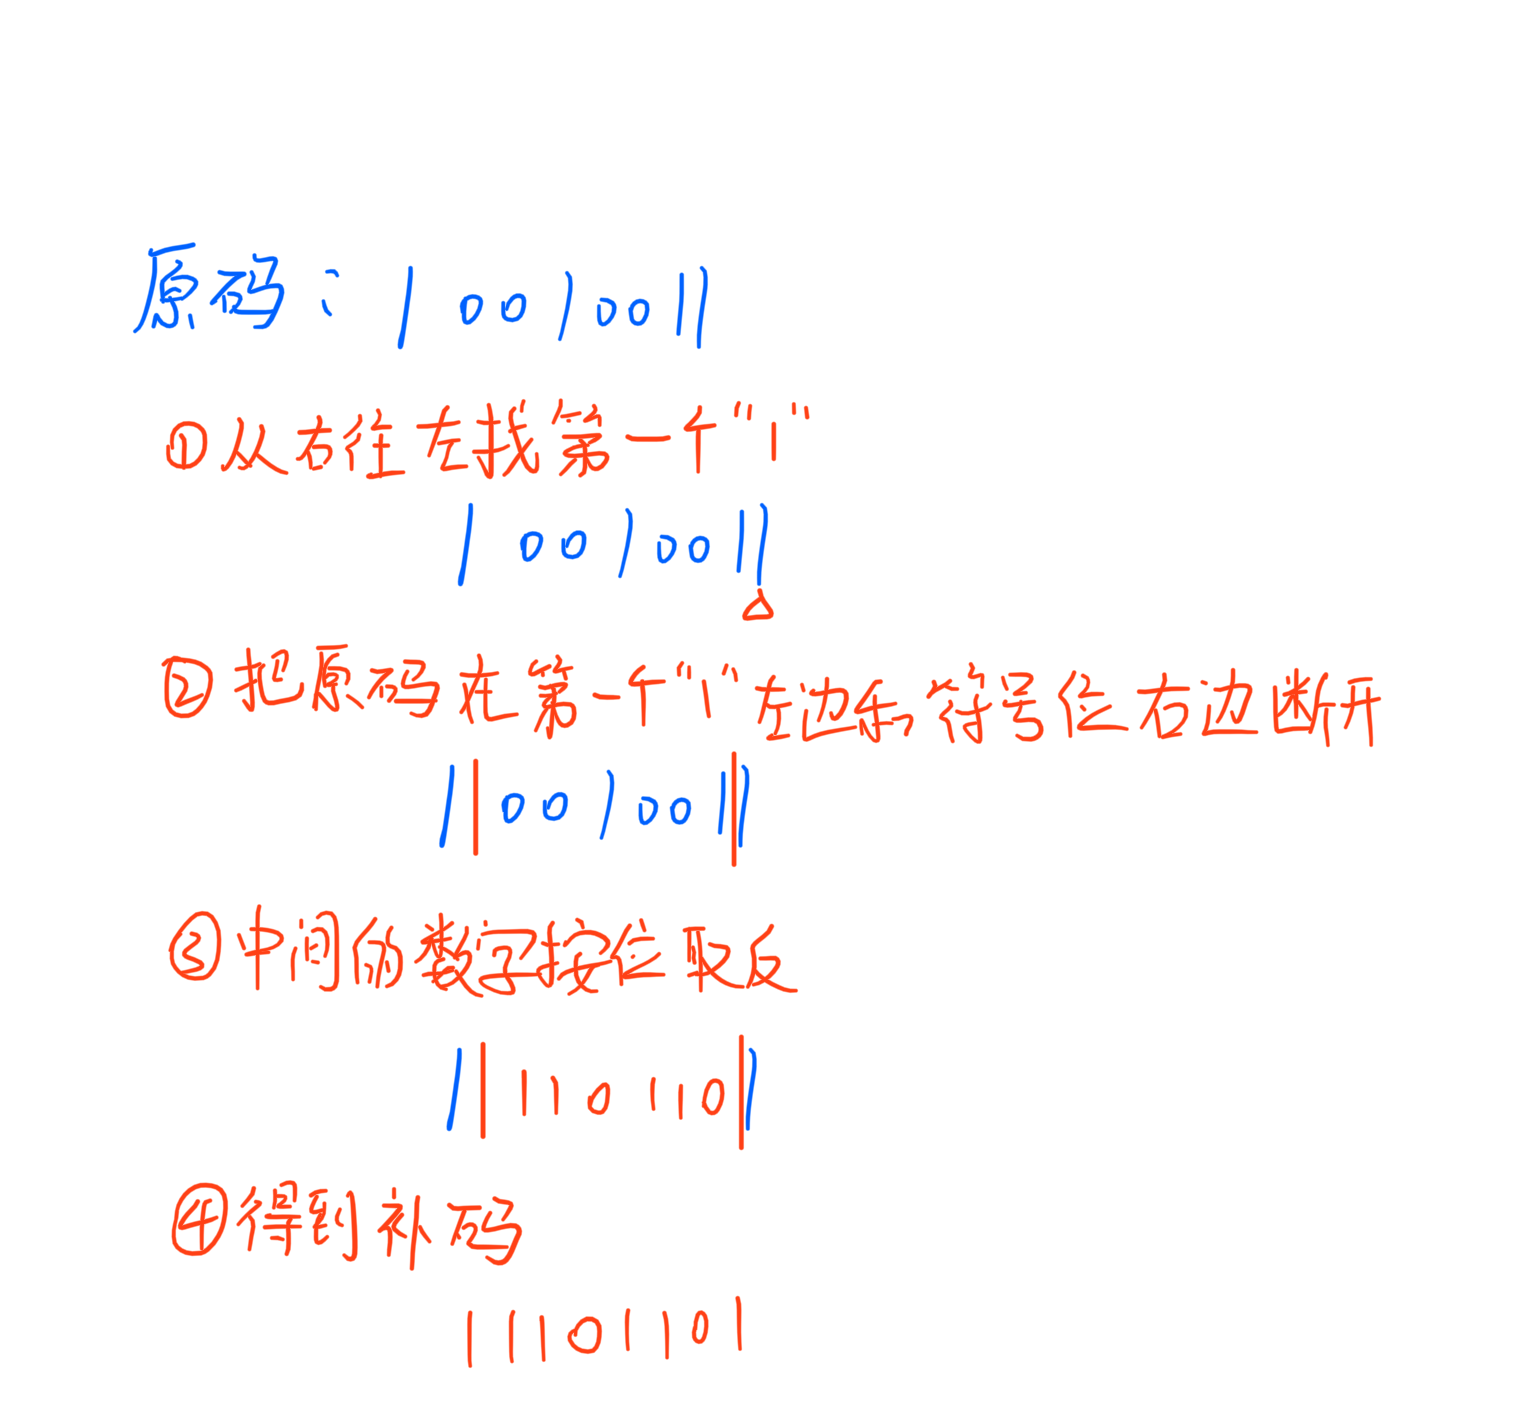 原码：10010011
①从右往左找第一个"1"
10010011
②把原码在第一个"1"左边和符号位右边断开
1|001001|1
③中间的数字按位取反
1|110110|1
④得到补码
11101101